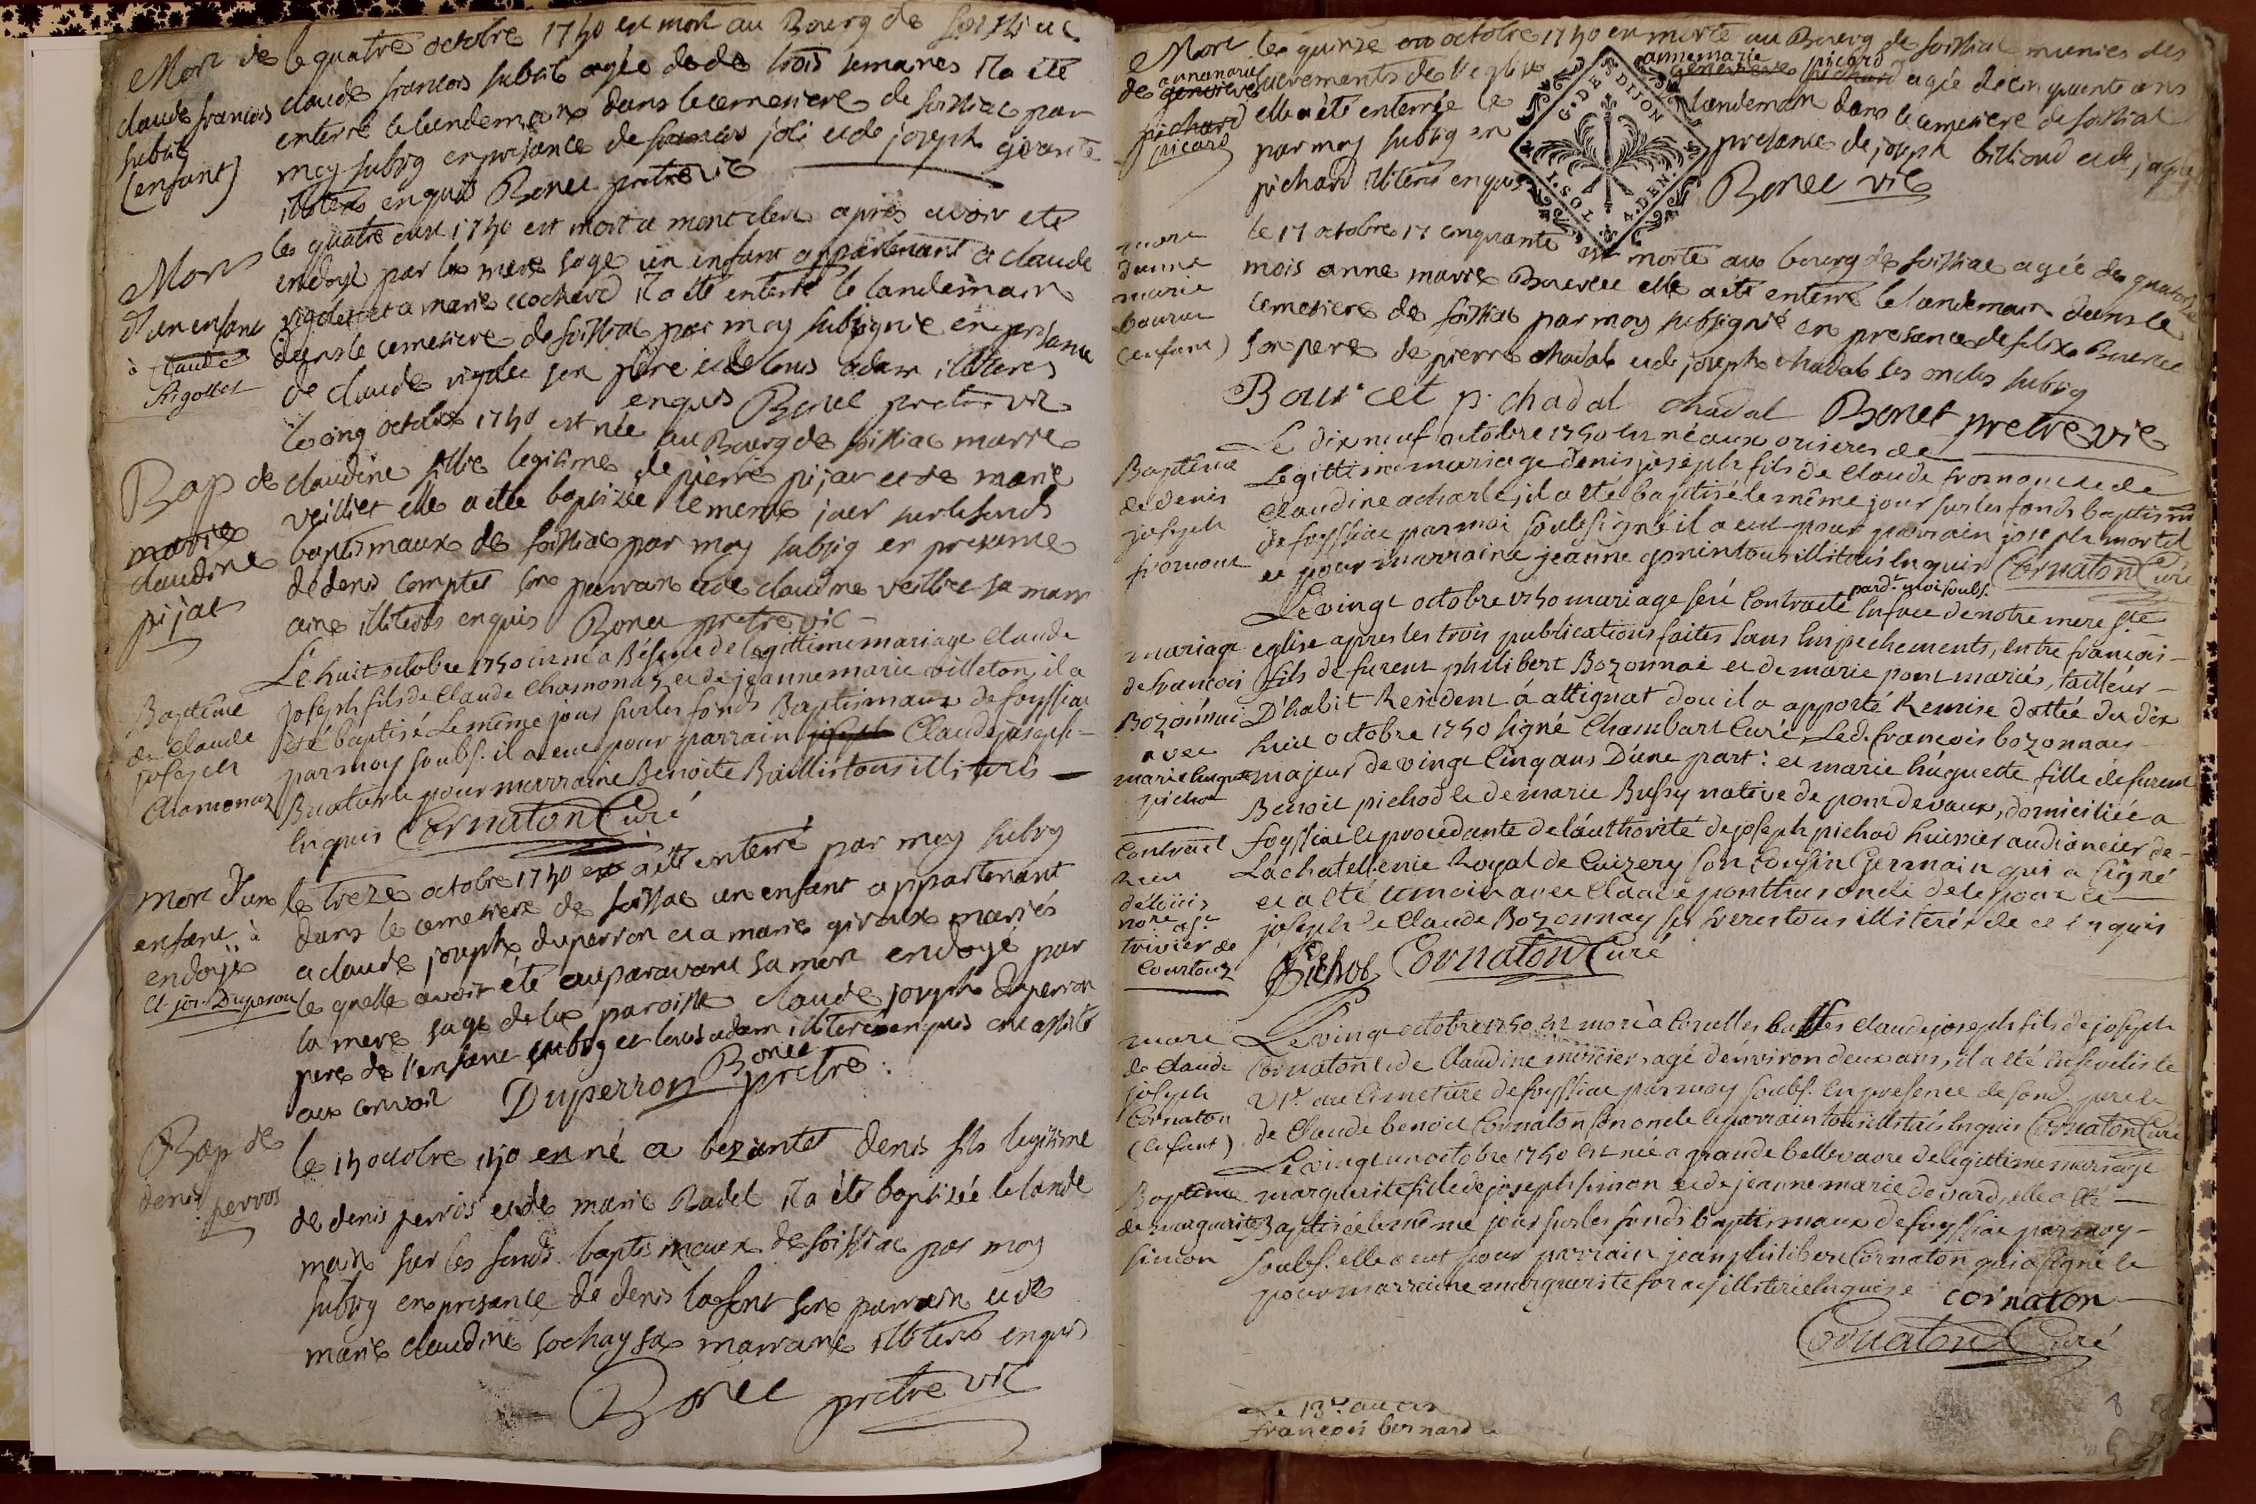 Mort de
claude francois
subtil
(enfant)
le quatre octobre 1750 est mort au Bourg de foissiac
claude francois subtil agée de de trois semaines il a été
enterré le lendemain dans le cemetiere de foissiac par
moy subsig en presance de francois joli et de joseph
illiteres enquis Bonet pretre vic
Mort
d'un enfant
à claude
Rigollet
le quatre 1750 est mort a montclere apres avoir eté
endoyé par la mere sage un enfant appartenant a claude
rigolet et a marie cochard il a été enterré le landemain
dans le cemetiere de foissiac par moy subsignié en presance
de claude rigolet son pere et de louis adam illiteres
enquis Bonet pretre vic
Bap de
marie
claudine
pijat
le cinq octobre 1750 est née au Bourg de foissiac marie
claudine fillie legitime de pierre pijat et de marie
veilliet elle a ete baptizée le meme jour sur le fonds
baptismaux de foissiac par moy subsig en presance
de denis comptet son parrain et de claudine veilliet sa marr
aine illiteres enquis Bonet pretre vic
Baptême
de Claude
joseph
Chamonaz
Le huit octobre 1750 est né a de legittime mariage Claude
joseph fils de Claude Chamonaz et de jeanne marie voilleton, il a
été baptisé Le même jour sur les fonds Baptismaux de foyssiac
par moy soubs. il a eu pour parrain joseph Claude joseph
et pour marraine Benoite Baillis tous illiterés
Enquis Cornaton Curé
Mort d'un
enfant à
endoyé
Cl. jos. Duperon
le treze octobre 1750 a été enterré par moy subsig
dans le cemetiere de foissiac un enfant appartenant
a claude joseph duperron et a marie giroux mariés
le quelle avoit été auparavant sa mort endoyé par
la mere sage de la paroisse claude joseph duperron
pere de l'enfant subsig et louis adam illiteré enquis ont assisté
au convoi Duperron Bonet pretre
Bap de
denis
perros
le 15 octobre 1750 est né a bezantet denis fils legitime
de denis perros et de marie Radel il a été baptizée le lande
main sur les fonds baptismaux de foissiac par moy
subsig en presance de denis lafont son parrain et de
marie claudine sochay sa marraine illiteres enquis
Bonet pretre vic
Mort
de annemarie
genevieve
pichard
picard
le quinze octobre 1750 est morte au Bourg de foissiac munies des
sacrements de l'eglise annemarie picard
genevieve pichard agée de cinquante ans
elle a été enterrée le landemain dans le cemetiere de foissiac
par moy subsig en presance de joseph billioud et de jaque
pichard illiteres enquis Bonet vic
G. DE DIJON
1. SOL
4. DEN.
mort
danne
marie
bourcet
(enfant)
le 17 octobre 17 cinquante est morte au bourg de foissiac agée de quatorze
mois anne marie Bourcet elle a été enterré le landemain dans le
cemetiere de foissiac par moy subsignié en presance de felix Bourcet
son pere de pierre chadal et de joseph chadal ses oncles subsig
Bourcet p. chadal chadal Bonet pretre vic
Baptême
de denis
joseph
fromont
Le dix neuf octobre 1750 est né aux orieres de
Legittime mariage denis joseph fils de Claude fromont et de
Claudine acharle, il a été baptisé le même jour sur les fonds baptism
de foyssiac par moi soubsigné il a eut pour parrain joseph mortel
et pour marraine jeanne gonin tous illiterés Enquis Cornaton Curé
mariage
de francois
Bozonnai
avec
marie huguette
pichod
Contract
reçu
de Loüis
nore. a St.
trivier de
Courtoux
Le vingt octobre 1750 mariage s'est Contracté pard.t moi soubs. En face de notre mere Ste.
eglise apres les trois publications faites sans Empechements, entre francois
fils de furent philibert Bozonnai et de marie pont mariés, tailleur
D'habit Resident á attignat dou il a apporté Remise dattée du dix
huit octobre 1750 signé Chambart Curé, Led. francois bozonnay
majeur de vingt Cinq ans D'une part : et marie huguette fille de furent
Benoit pichod et de marie Bussy native de pont de vaux, domiciliée a
foyssiac et procedante de l'authorité de joseph pichod huissier audiancier de
La chatellenie Royal de Cuizery son Cousin Germain qui a signé
et a été temoin avec Claude ponthus oncle de lepoux et
joseph et Claude Bozonnay ses freres tous illiterés de ce Enquis
Pichod Cornaton Curé
mort
de Claude
joseph
Cornaton
(Enfant)
Le vingt octobre 1750 est mort à Cornelles basses Claude joseph fils de joseph
Cornaton et de Claudine mercier, agé d'environ deux ans, il a été Enseveli le
21e. au Cimetiere de foyssiac par moy soubs. En presence de sond. pere et
de Claude benoit Cornaton son oncle et parrain tous illiterés Enquis Cornaton Curé
Baptême
de marguerite
simon
Le vingt un octobre 1750 est née a grande bellevavre de legittime mariage
marguerite fille de joseph simon et de jeanne marie devard, elle a été
Baptisée le même jour sur les fonds baptismaux de foyssiac par moy
soubs. elle a eut pour parrain jean philibert Cornaton qui a signé et
pour marraine marguerite illiteré Enquise cornaton
Cornaton Curé
Le 13e.
francois bernard